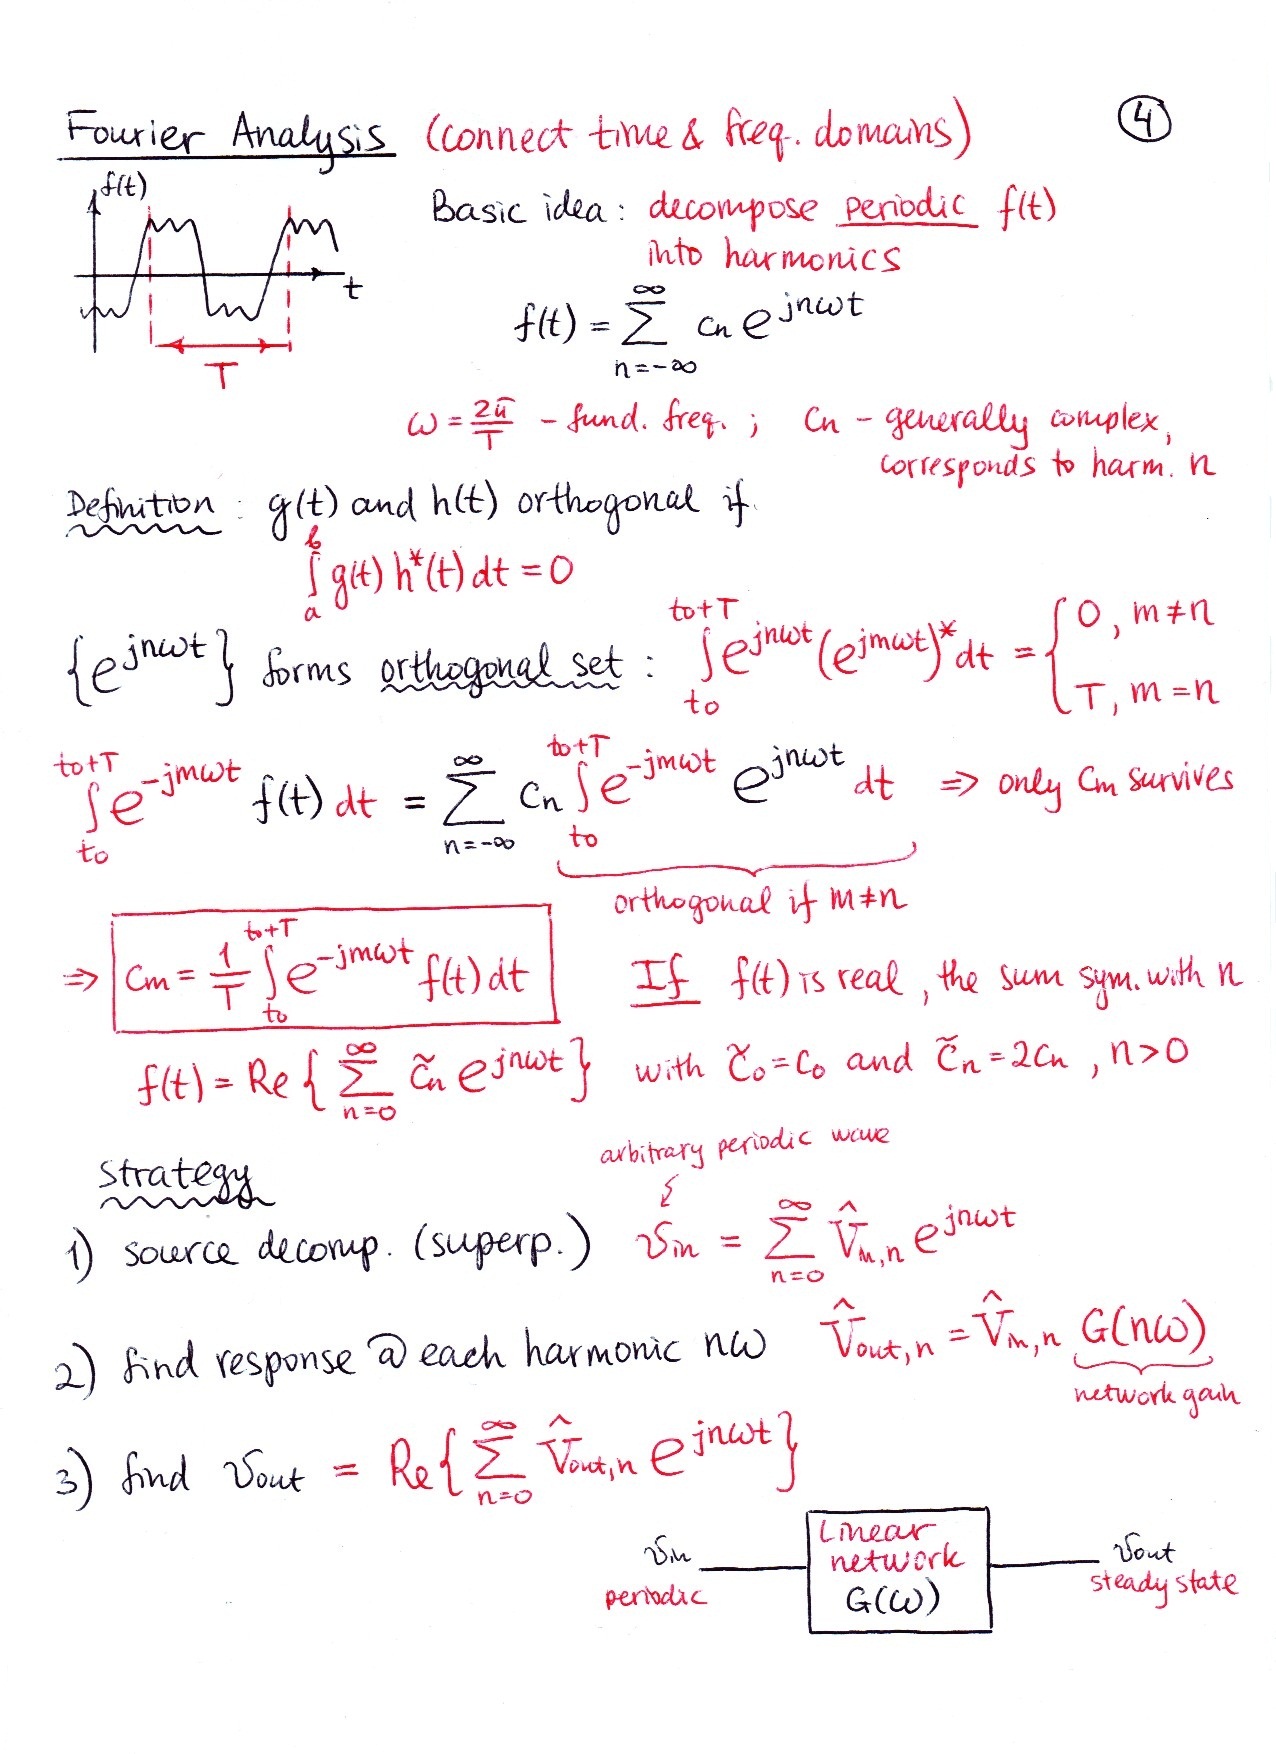 Fourier Analysis (connect time & freq. domains) 4
f(t)
Basic idea: decompose periodic f(t)
into harmonics
t
T
f(t) = ∑_{n=-∞}^{∞} Cn e^{jnωt}
ω = 2π/T - fund. freq. ; Cn - generally complex,
corresponds to harm. n
Definition : g(t) and h(t) orthogonal if
∫_a^b g(t) h*(t) dt = 0
{e^{jnωt}} forms orthogonal set : ∫_{to}^{to+T} e^{jnωt} (e^{jmωt})* dt = { 0, m≠n
T, m=n
∫_{to}^{to+T} e^{-jmωt} f(t) dt = ∑_{n=-∞}^{∞} Cn ∫_{to}^{to+T} e^{-jmωt} e^{jnωt} dt ⇒ only Cm survives
orthogonal if m≠n
⇒ Cm = 1/T ∫_{to}^{to+T} e^{-jmωt} f(t) dt If f(t) is real, the sum sym. with n
f(t) = Re { ∑_{n=0}^{∞} C̃n e^{jnωt} } with C̃o = Co and C̃n = 2Cn , n>0
arbitrary periodic wave
Strategy
1) source decomp. (superp.) vin = ∑_{n=0}^{∞} V̂in,n e^{jnωt}
2) find response @ each harmonic nω V̂out,n = V̂in,n G(nω)
network gain
3) find vout = Re { ∑_{n=0}^{∞} V̂out,n e^{jnωt} }
vin
periodic
Linear
network
G(ω)
vout
steady state